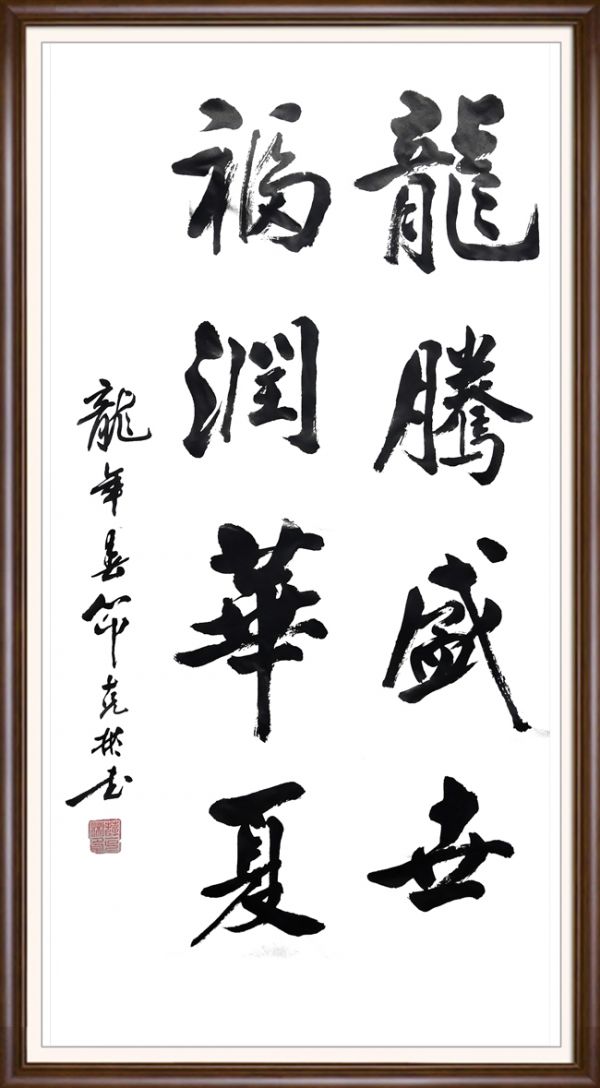 龍騰盛世
福潤華夏
龍年春節克彬书